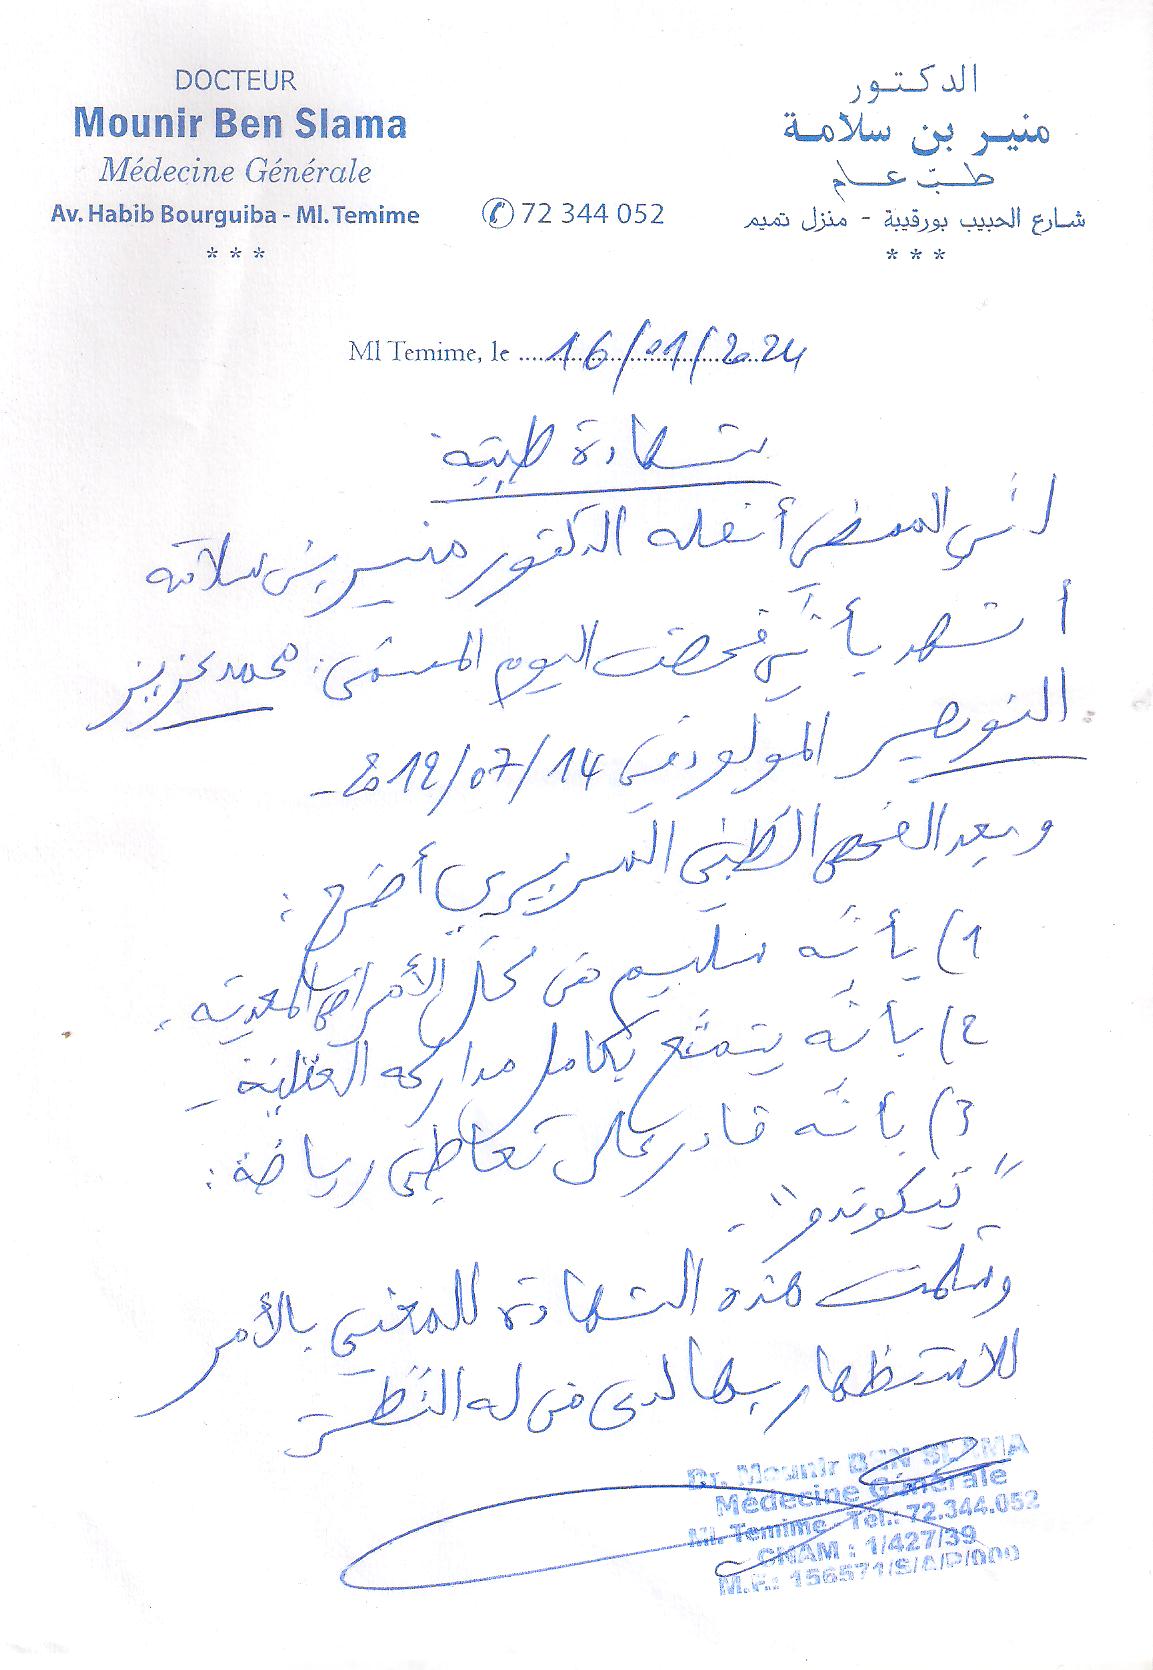 DOCTEUR
Mounir Ben Slama
Médecine Générale
Av. Habib Bourguiba - Ml. Temime
* * *
72 344 052
الدكتور
منير بن سلامة
طب عام
شارع الحبيب بورقيبة - منزل تميم
* * *
Ml Temime, le 16/01/2024
شهادة طبية
إني الممضي أسفله الدكتور منير بن سلامة
أشهد بأني فحصت اليوم المسمى: محمد عزيز
المولود في 14/07/2012 -
وبعد الفحص الطبي السريري أصرح :
1) بأنه سليم من كل الأمراض المعدية -
2) بأنه يتمتع بكامل مداركه العقلية -
3) بأنه قادر على تعاطي رياضة :
"تيكوندو" -
وسلمت هذه الشهادة للمعني بالأمر
للاستظهار بها لدى من له النظر
Dr. Mounir BEN SLAMA
Médecine Générale
Ml. Temime - Tél.: 72.344.052
CNAM : 1/427/39
M.F.: 156571/S/A/P/000